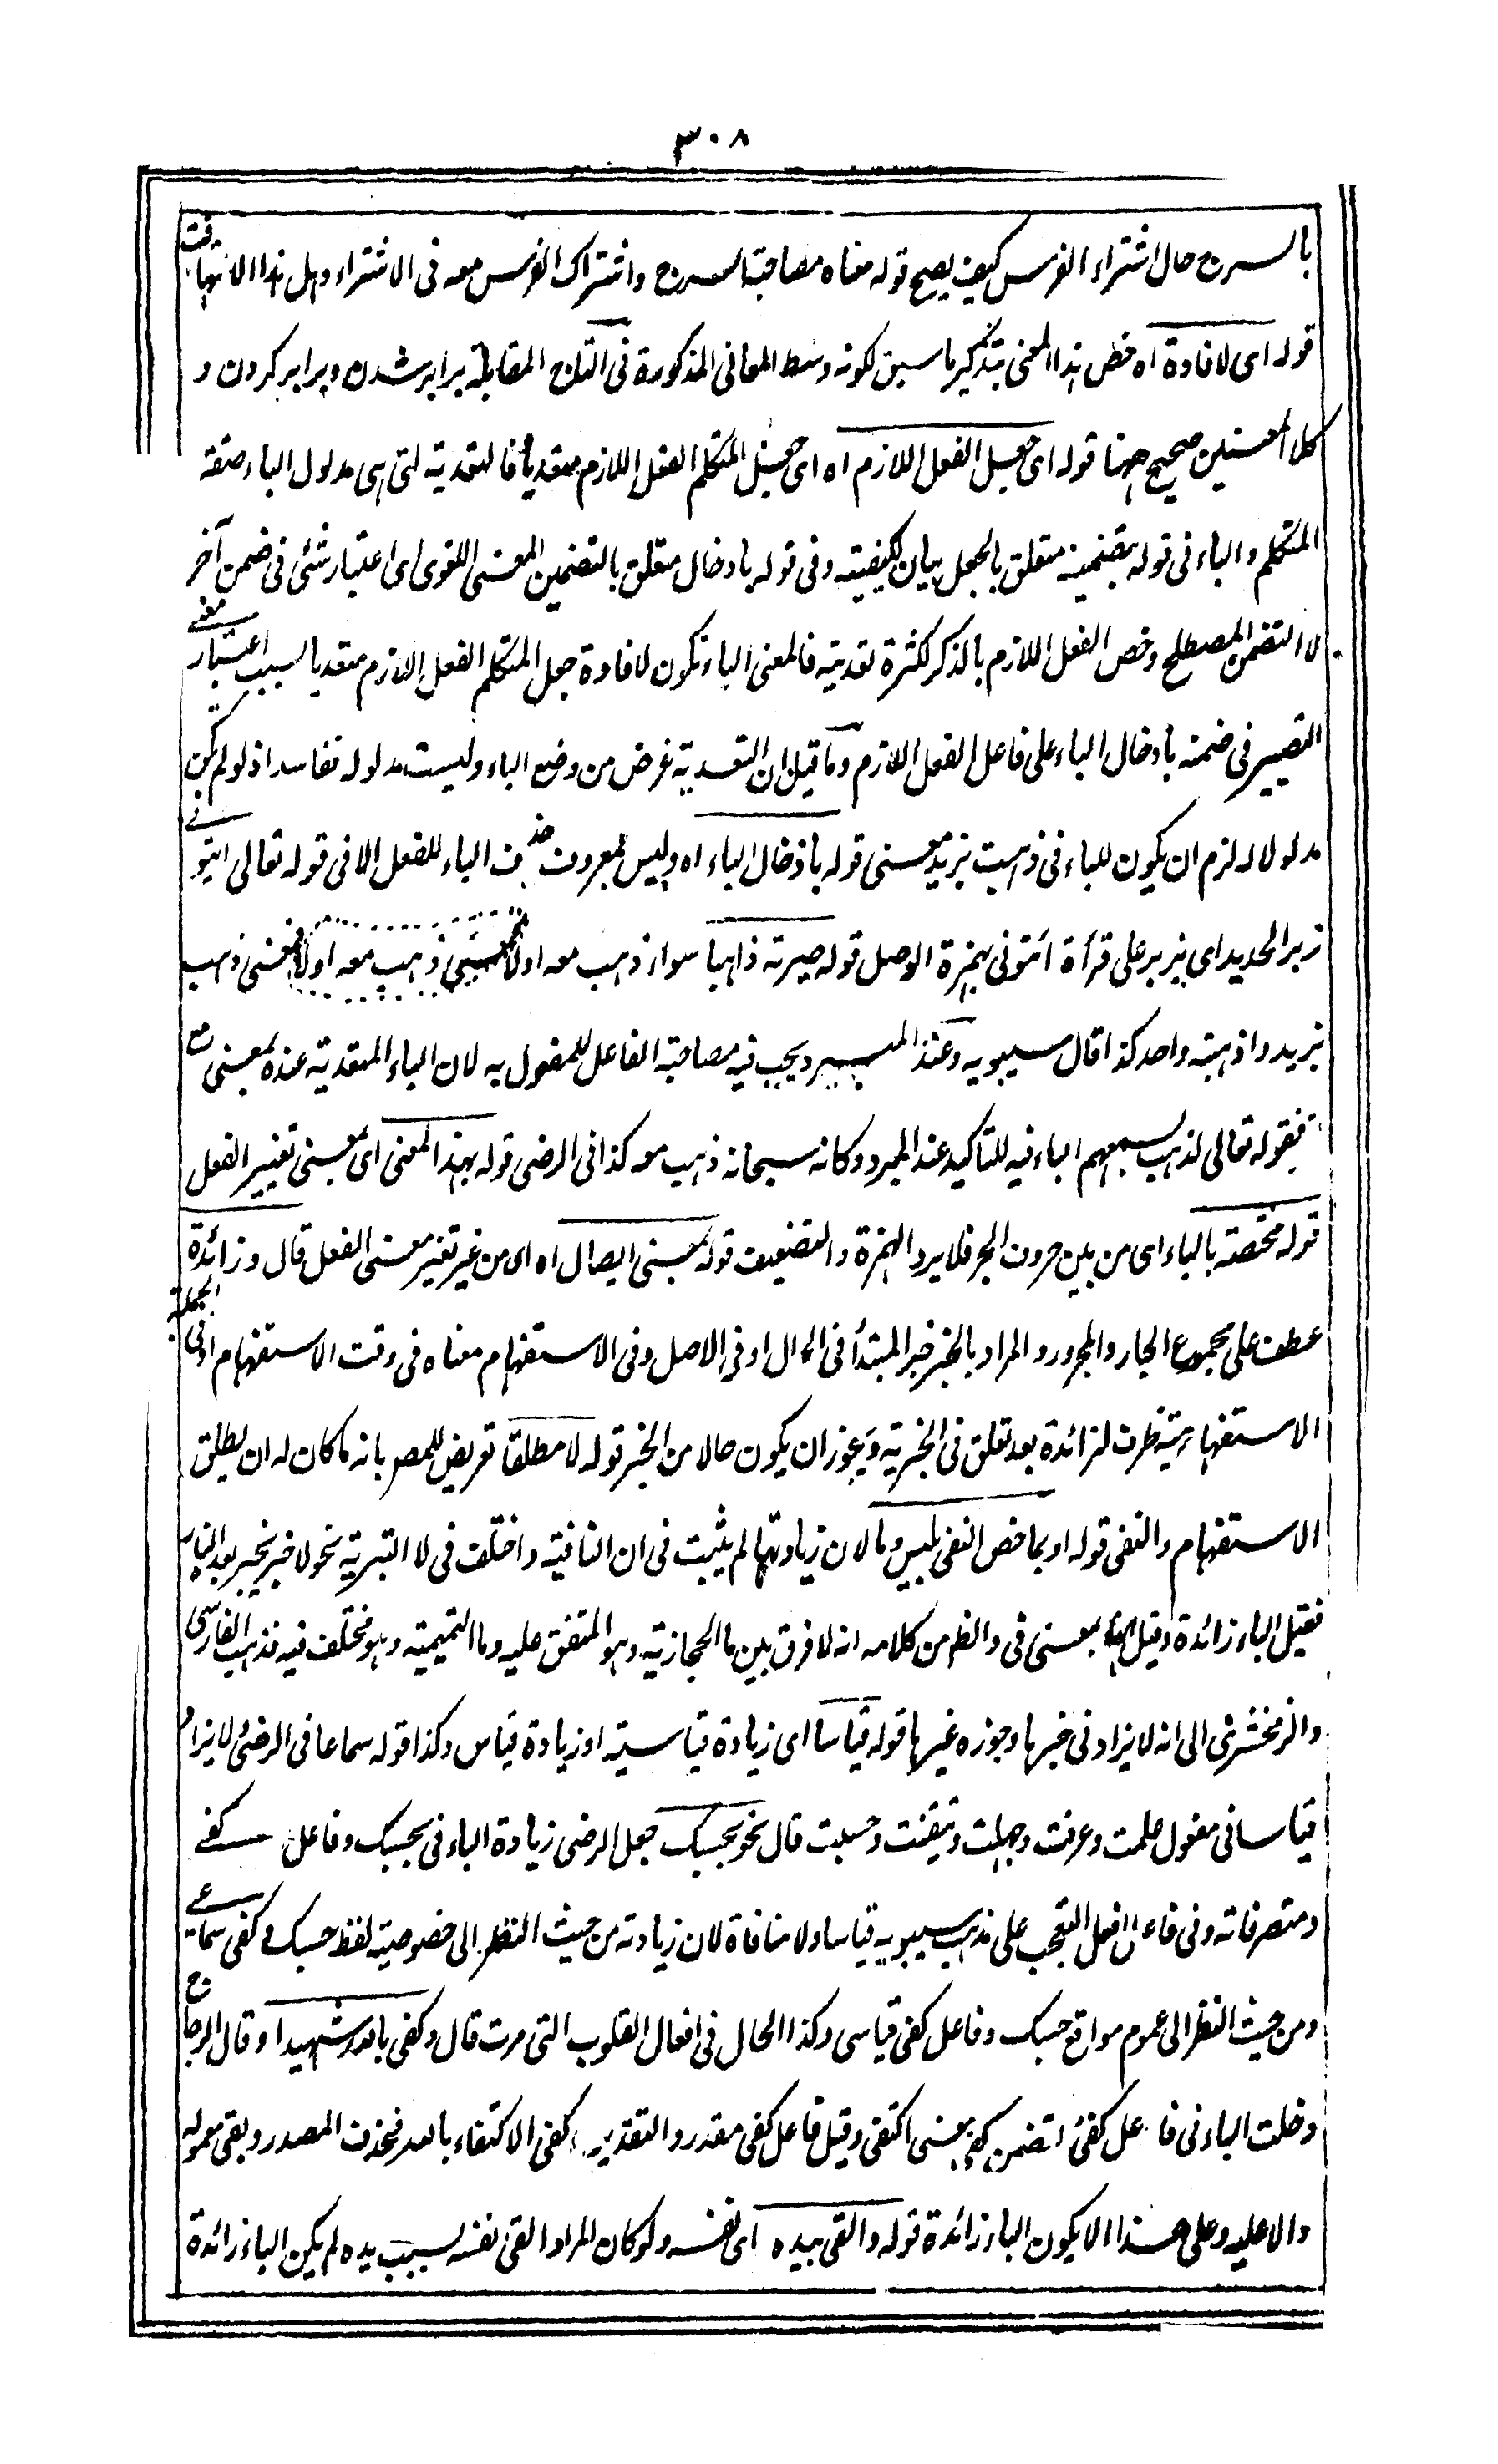 ٣٠٨
بالسرج حال اشتراء الفرس كيف يصح قوله معناه مصاحبة السرج واشتراك الفرس معه فى الاشتراء وهل هذا الا تهافت
قوله اى لافادة اه خص هذا المعنى بتذكير ما سبق لكونه وسط المعانى المذكورة فى التاج المقابلة برابر شدن وبرابر كردن و
كلا المعنيين صحيح ههنا قوله اى جعل الفعل اللازم اه اى جعل المتكلم الفعل اللازم متعديا فالتعدية التى هى مدلول الباء صفة
المتكلم والباء فى قوله بتضمينه متعلق بالجعل بيان لكيفيته وفى قوله بادخال متعلق بالتضمين المعنى اللغوى اى اعتبار شئى فى ضمن آخر
لا التضمن المصطلح وخص الفعل اللازم بالذكر لكثرة تعديته فالمعنى الباء تكون لافادة جعل المتكلم الفعل اللازم متعديا بسبب اعتبار معنے
التصيير فى ضمنه بادخال الباء على فاعل الفعل اللازم وما قيل ان التعدية غرض من وضع الباء وليست مدلوله ففاسد اذ لو لم يكن
مدلولا له لزم ان يكون للباء فى ذهبت بزيد معنى قوله بادخال الباء اه وليس بمعروف حذف الباء للفعل الا فى قوله تعالى ايتونے
زبر الحديد اى بزبر على قرأة ائتونى بهمزة الوصل قوله صيرته ذاهبا سواء ذهب معه اولا فمعنى ذهب معه اولا فمعنى ذهب
بزيد واذهبته واحد كذا قال سيبويه وعند المبرد يجب فيه مصاحبة الفاعل للمفعول به لان الباء المتعدية عنده بمعنى مع
فقوله تعالى لذهب بسمعهم الباء فيه للتاكيد عند المبرد وكانه سبحانه ذهب معه كذا فى الرضى قوله بهذا المعنى اى بمعنى تغيير الفعل
قوله مختصة بالباء اى من بين حروف الجر فلا يرد الهمزة والتضعيف قوله بمعنى ايصال اه اى من غير تغير معنى الفعل قال وزائدة
عطف على مجموع الجار والمجرور والمراد بالخبر خبر المبتدأ فى الحال او فى الاصل وفى الاستفهام معناه فى وقت الاستفهام او فى الجملة
الاستفهامية ظرف لزائدة بعد تعلق فى الخبرية ويجوز ان يكون حالا من الخبر قوله لا مطلقا تعريض للمصر بانه ما كان له ان يطلق
الاستفهام والنفى قوله او بما خص النفى بليس وما لان زيادتها لم يثبت فى ان النافية واختلف فى لا التبرية نحو لا خير بخير بعد النار
فقيل الباء زائدة وقيل انها بمعنى فى والظ من كلامه انه لا فرق بين ما الحجازية وهو المتفق عليه وما التميمية وهو مختلف فيه فذهب الفارسى
والزمخشرى الى انه لا يزاد فى خبرها وجوزه غيرها قوله قياسا اى زيادة قياسية او زيادة قياس وكذا قوله سماعا فى الرضى لا يزاد
قياسا فى مفعول علمت وعرفت وجهلت وتيقنت وحسبت قال نحو بحسبك جعل الرضى زيادة الباء فى بحسبك وفاعل كفے
ومتصرفاته وفى فاعل افعل التعجب على مذهب سيبويه قياسا ولا منافاة لان زيادته من حيث النظر الى خصوصية لفظ حسبك وكفى سماعے
ومن حيث النظر الى عموم مواقع حسبك وفاعل كفى قياسى وكذا الحال فى افعال القلوب التى مرت قال وكفى بالله شهيدا وقال الزجاج
دخلت الباء فى فاعل كفى لتضمن كفى بمعنى اكتفى وقيل فاعل كفى مقدر والتقدير كفى الاكتفاء بالله فحذف المصدر وبقى معموله
دالا عليه وعلى هذا الا يكون الباء زائدة قوله والقى بيده اى نفسه ولو كان المراد القى نفسه بسبب يده لم يكن الباء زائدة